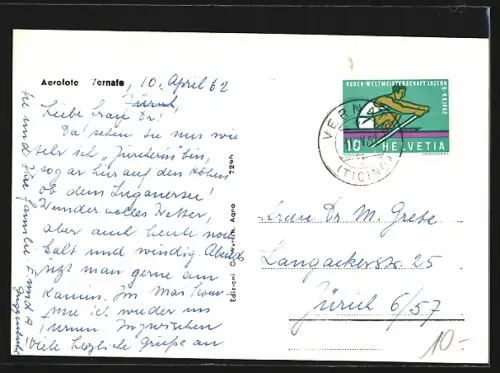 Aerofoto Vernate, 10. April 62
Zürich,
Liebe Frau Dr!
Da sehen Sie nur wie
sehr ich „Zürcherin" bin,
sogar hier auf den Höhen
ob dem Luganersee!
Wundervolles Wetter,
aber auch heute noch
kalt und windig. Abends
sitzt man gerne am
Kamin. Im Mai
ich wieder
turnen. Inzwischen
viele herzliche Grüsse an
Sie und Ihre Familie
Edizioni G. Agno 7209
RUDER-WELTMEISTERSCHAFT LUZERN
6-9.IX.1962
10 HELVETIA
VERNATE
(TICINO)
Frau Dr M. Grete
Langackerstr. 25
Zürich 6/57
10-